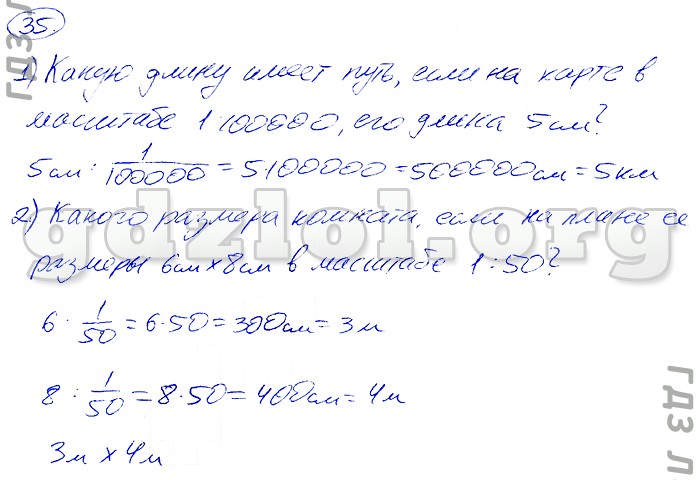 35.
1) Какую длину имеет путь, если на карте в
масштабе 1:100000, его длина 5см?
5см : 1/100000 = 5·100000 = 500000см = 5км
2) Какого размера комната, если на плане ее
размеры 6см х 8см в масштабе 1:50?
6 : 1/50 = 6·50 = 300см = 3м
8 : 1/50 = 8·50 = 400см = 4м
3м х 4м
gdzlol.org
ГДЗ Л
ГДЗ Л